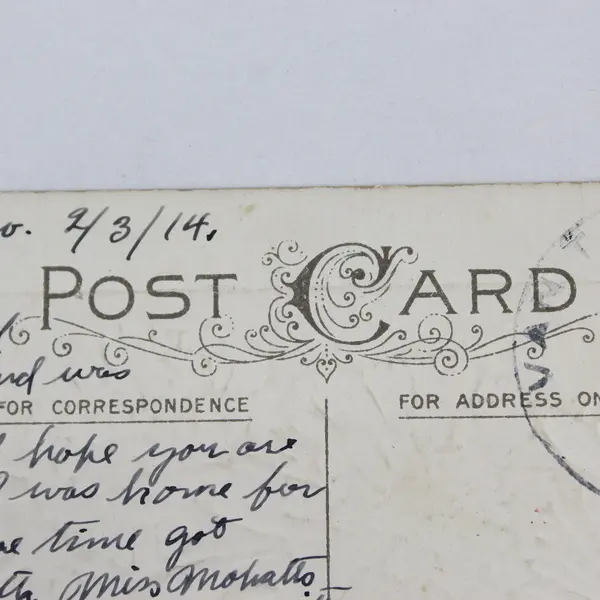 o. 2/3/14.
POST CARD
and was
FOR CORRESPONDENCE
FOR ADDRESS ON
hope you are
I was home for
time got
Miss Mohatts